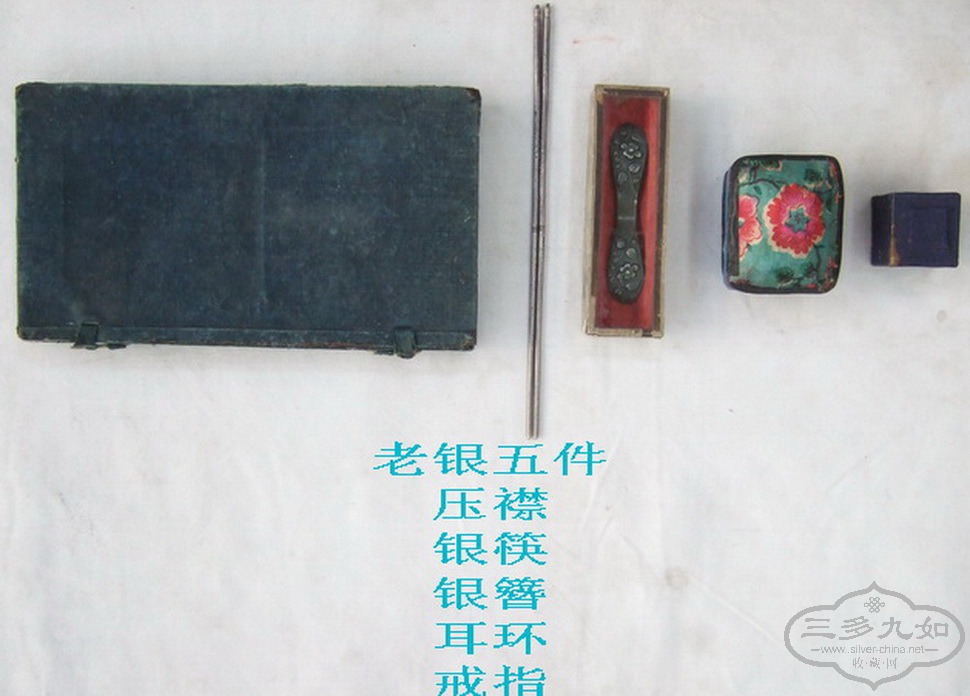 老银五件
压襟
银筷
银簪
耳环
戒指
三多九如
www.silver-china.net
收·藏·网